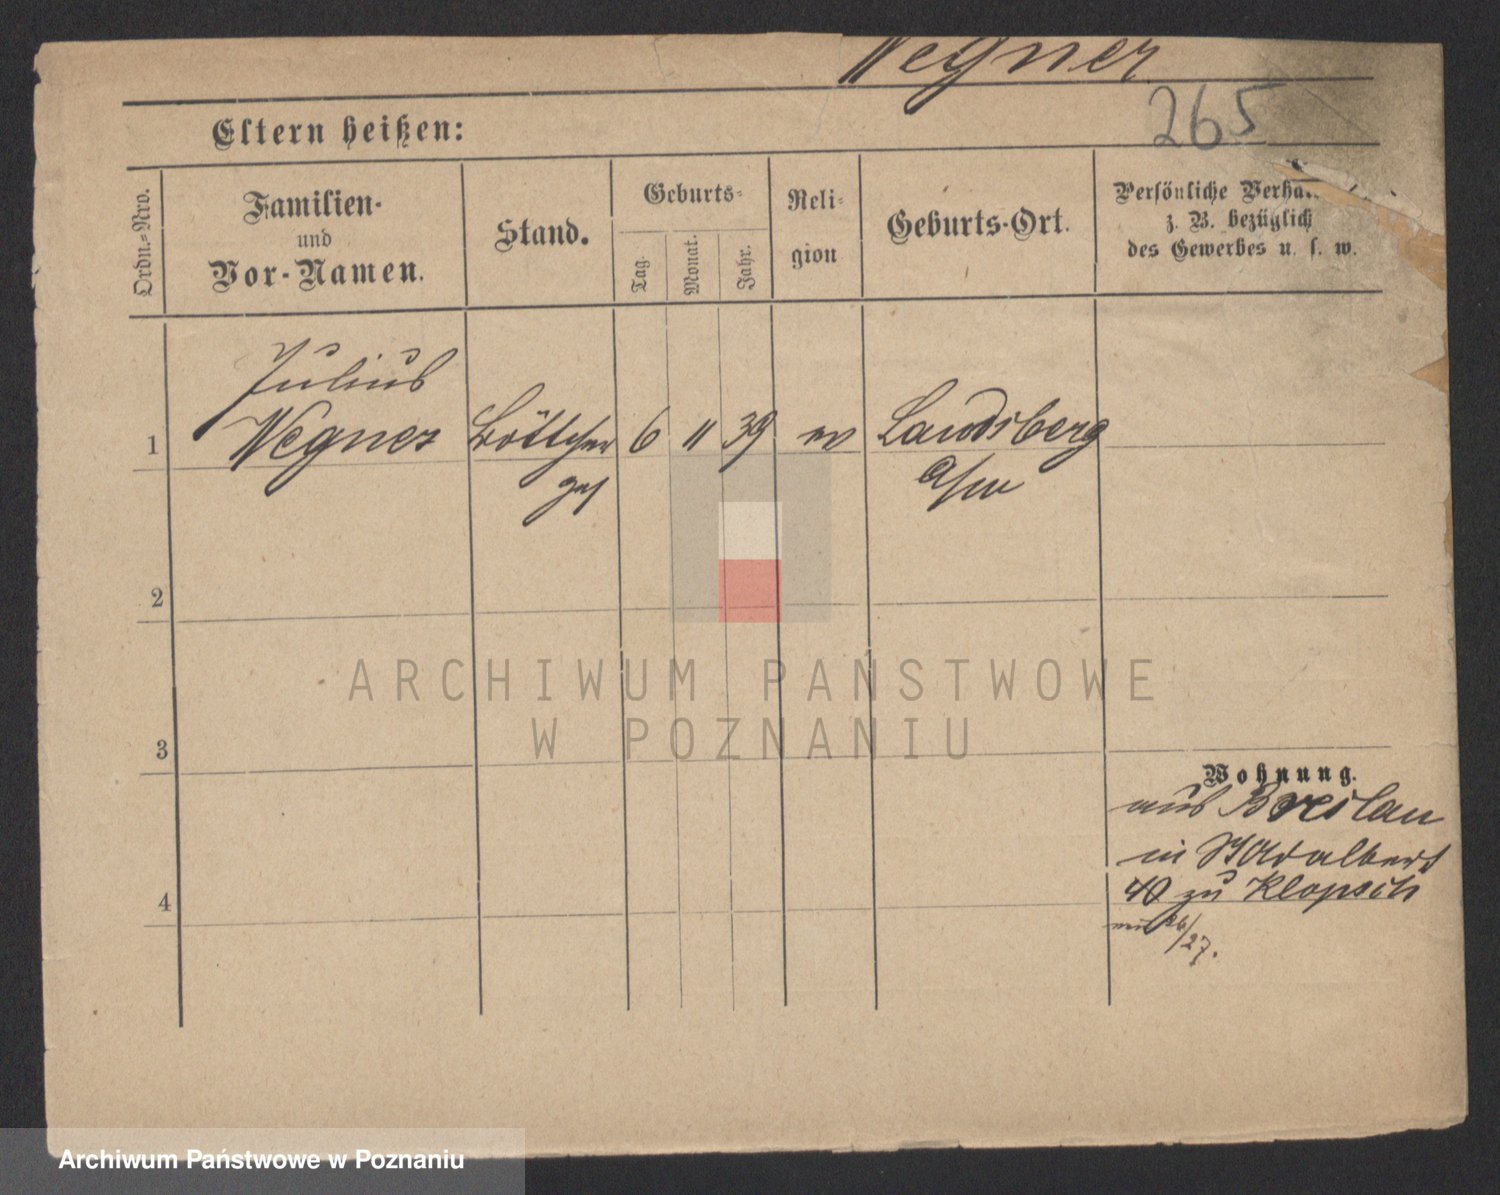 Wegner
265
Eltern heißen:
Ordn.-Nro.
Familien-
und
Vor-Namen.
Stand.
Geburts-
Tag.
Monat.
Jahr.
Reli-
gion
Geburts-Ort.
Persönliche
z. B. bezüglich
des Gewerbes u. s. w.
Julius
1 Wegner Böttcher 6 11 39 ev Landsberg
ges a/w
2
3
Wohnung.
aus Breslau
in St Adalbert
4 40 zu Klopsch
26/27.
ARCHIWUM PAŃSTWOWE
W POZNANIU
Archiwum Państwowe w Poznaniu